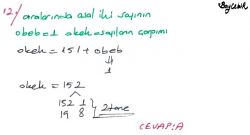 12.) aralarında asal iki sayının
obeb=1 okek=sayıların çarpımı
okek = 151 + obeb
1
okek = 152
152 1
19 8 } 2 tane
CEVAP: A